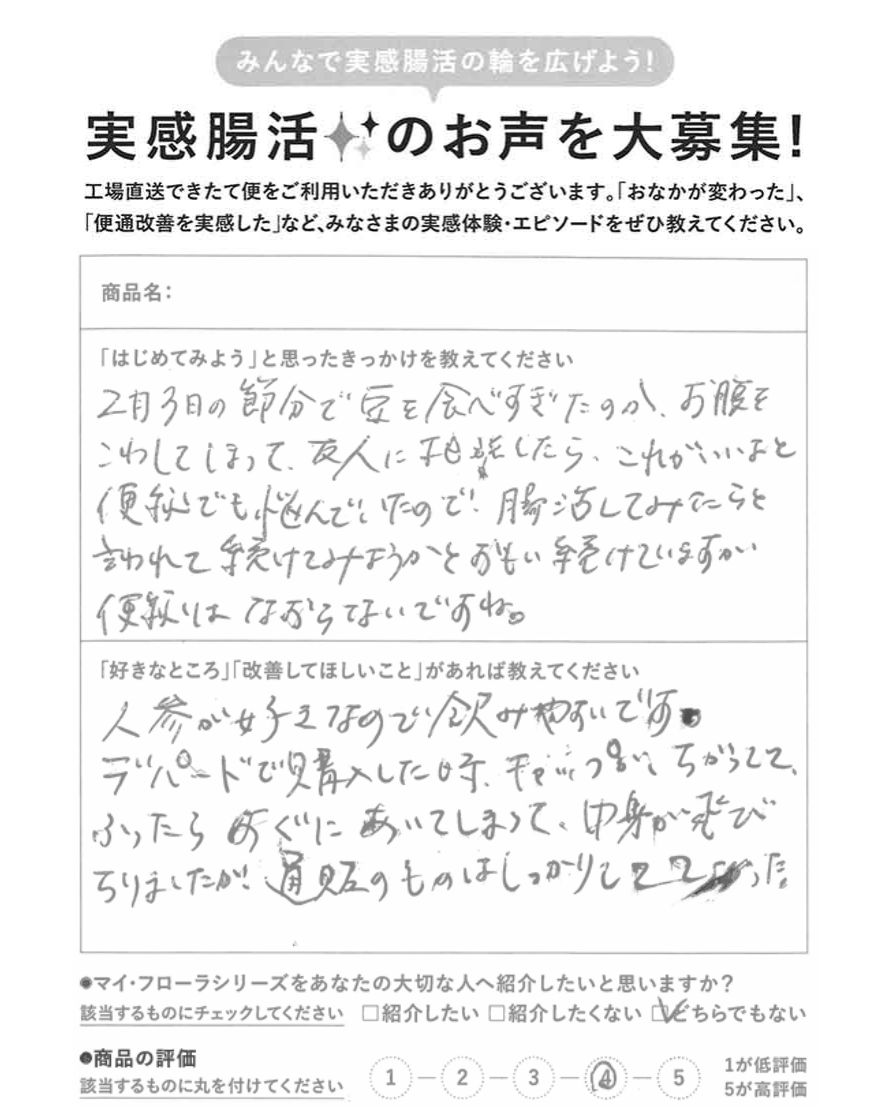 みんなで実感腸活の輪を広げよう!
実感腸活のお声を大募集!
工場直送できたて便をご利用いただきありがとうございます。「おなかが変わった」、
「便通改善を実感した」など、みなさまの実感体験・エピソードをぜひ教えてください。
商品名:
「はじめてみよう」と思ったきっかけを教えてください
2月3日の節分で豆を食べすぎたのか、お腹を
こわしてしまって、友人に相談したら、これがいいよと
便秘でも悩んでいたので、腸活してみたらと
言われて続けてみようかとおもい続けていますが
便秘はながらてないですね。
「好きなところ」「改善してほしいこと」があれば教えてください
人参が好きなので飲みやすいです。
デパードで購入した時、キャップが ちがってて、
ふったらすぐにあいてしまって、中身が飛び
ちりましたが、通販のものはしっかりして よかった。
●マイ・フローラシリーズをあなたの大切な人へ紹介したいと思いますか?
該当するものにチェックしてください □紹介したい □紹介したくない ☑どちらでもない
●商品の評価
該当するものに丸を付けてください 1 - 2 - 3 - 4 - 5
1が低評価
5が高評価